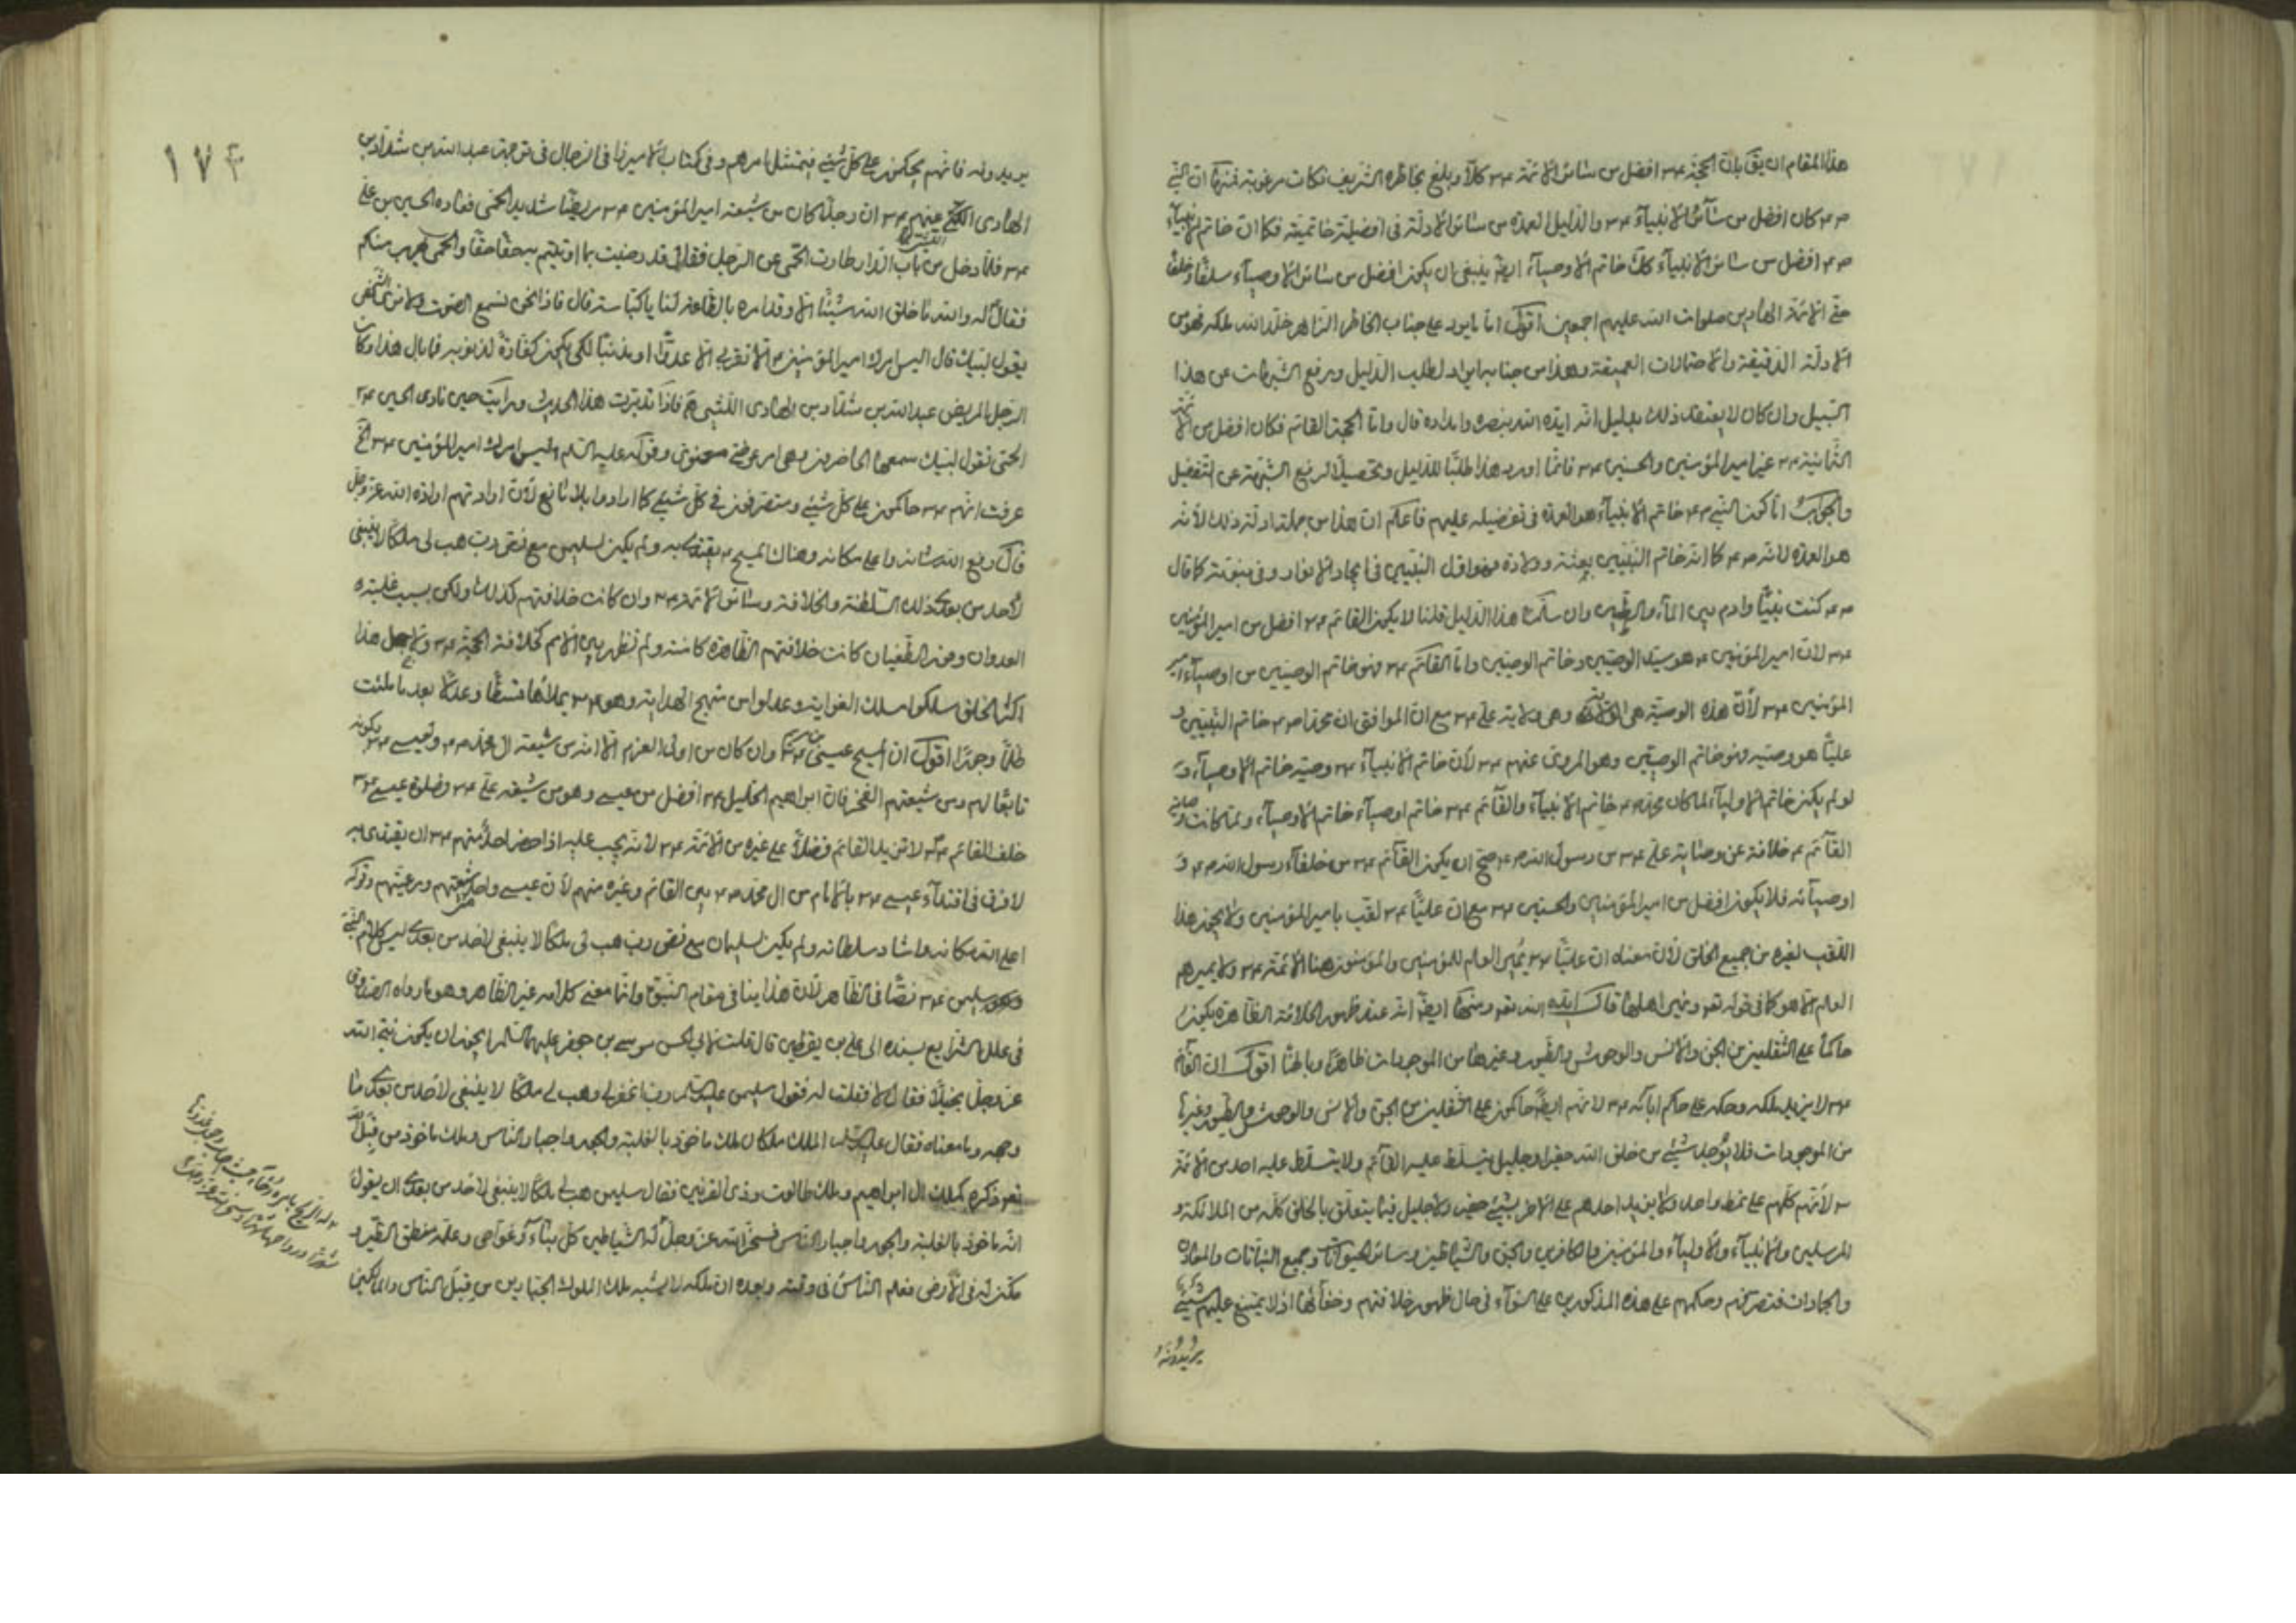 هذا المقام ان يق بان الحجة ع م افضل من سائر الائمة ع م كلا و بلغ بخاطره الشريف نكات مرغوبة فمنها ان النبي
ص م كان افضل من سآئر الانبيآء ع م والدليل العمدة من سائر الادلة فى افضليته خاتميته فكما ان خاتم الانبيآء
ص م افضل من سائر الانبيآء كك خاتم الاوصيآء ايض ينبغى ان يكون افضل من سائر الاوصيآء سلفا و خلفا
حتى الائمة الهادين صلوات الله عليهم اجمعين اقول اما ما يورد على جناب الخاطر الزاهر خلد الله ملكه فهو من
الادلة الدقيقة والاحتمالات العميقة وهذا من جنابه ايراد لطلب الدليل ويرفع الشبهات عن هذا
السبيل وان كان لا يعتقد ذلك بدليل انه ايده الله بنصره وامداده قال واما الحجة القائم فكان افضل من الائمة
الثمانية ع م غير امير المؤمنين والحسنين ع م فانما اورد هذا طلبا للدليل وتحصيلا لرفع الشبهة عن التفضيل
والجواب اما كون النبى ص م خاتم الانبيآء هو العمدة فى تفضيله عليهم فاعلم ان هذا من جملة ادلة ذلك لا انه
هو العمدة لانه ص م كما انه خاتم النبيين بعثة وولادة فهو اول النبيين فى ايجاد الانوار وفى نبوته كما قال
ص م كنت نبيا وادم بين المآء والطين وان سلمنا هذا الدليل قلنا لا يكون القائم ع م افضل من امير المؤمنين
ع م لان امير المؤمنين ع م هو سيد الوصيين وخاتم الوصيين واما القآئم ع م فهو خاتم الوصيين من اوصيآء امير
المؤمنين ع م لان هذه الوصية هى وهى ولاية على ع م مع ان الموافق ان محمدا ص م خاتم النبيين و
عليا هو وصيه فهو خاتم الوصيين وهو المروى عنهم ع م لان خاتم الانبيآء ع م وصيه خاتم الاوصيآء و
لو لم يكن خاتم الاوليآء لما كان محمد ص م خاتم الانبيآء والقآئم ع م خاتم اوصيآء خاتم الاوصيآء ولما كانت وصاية
القآئم ع م خلافة عن وصاية على ع م من رسول الله ص م صح ان يكون القآئم ع م من خلفآء رسول الله ص م و
اوصيآئه فلا يكون افضل من امير المؤمنين والحسنين ع م مع ان عليا ع م لقب بامير المؤمنين ولا يجوز هذا
اللقب لغيره من جميع الخلق لان معناه ان عليا ع م يمير العلم للمؤمنين والمؤمنون هنا الائمة ع م ولا يميرهم
العلم الا هو كما فى قوله تعو ونمير اهلنا قال ايده الله تعو ومنها ايض انه عند ظهور الخلافة الظاهرة يكون
حاكما على الثقلين من الجن والانس والوحوش والطيور وغيرها من الموجودات ظاهرا وباطنا اقول ان القآئم
ع م لا يزيد ملكه وحكمه على حكم ابآئه ع م لانهم ايض حاكمون على الثقلين من الجن والانس والوحوش والطيور وغيرها
من الموجودات فلا يوجد شيئ من خلق الله حقير او جليل يتسلط عليه القآئم ولا يتسلط عليه احد من الائمة
ع م لانهم كلهم على نمط واحد ولا يزيد احدهم على الاخر بشيئ حقير ولا جليل فيما يتعلق بالخلق كله من الملائكة و
المرسلين والانبيآء والاوليآء والمؤمنين والكافرين والجن والشياطين وسائر الحيوانات وجميع النباتات والمعادن
والجمادات فتصرفهم وحكمهم على هذه المذكورين على السوآء فى حال ظهور خلافتهم وخفآئها اذ لا يمتنع عليهم شيئ
يريدونه
١٧٤
يريدونه فانهم يحكمون على كل شيئ فيمتثل امرهم وفى كتاب الاميرزا فى الرجال فى ترجمة عبد الله بن شداد بن
الهادى الليثى عنهم ع م ان رجلا كان من شيعة امير المؤمنين ع م مريضا شديد الحمى فعاده الحسين بن على
ع م فلما دخل من باب الدار طارت الحمى عن الرجل فقال قد رضيت بما اوتيتم به حقا حقا والحمى تهرب منكم
فقال له والله ما خلق الله شيئا الا وقد امره بالطاعة لنا يا كباسة قال فاذا نحن نسمع الصوت ولا نرى الشخص
يقول لبيك قال اليس امرك امير المؤمنين ع م الا تقربى الا عدوا او مذنبا لكى يكون كفارة لذنوبه فما بال هذا وكان
الرجل المريض عبد الله بن شداد بن الهادى الليثى فاذا تدبرت هذا الحديث ورايت حين نادى الحسين ع م
الحمى تقول لبيك سمعها الحاضرون وهى امر عرضى معنوى وقوله عليه السلم اليس امرك امير المؤمنين ع م الخ
عرفت انهم ع م حاكمون على كل شيئ ومتصرفون فى كل شيئ كما ارادوا بلا مانع لان ارادتهم ارادة الله عز وجل
قال رفع الله شانه واعلى مكانه وهناك المسيح ع م يقتدى به ولم يكن لسليمن مع نص رب هب لى ملكا لا ينبغى
لاحد من بعدى ذلك السلطنة والخلافة وسائر الائمة ع م وان كانت خلافتهم كذلك ولكن بسبب غلبة
العدوان وفور الطغيان كانت خلافتهم الظاهرة كامنة ولم تظهر بين الامم كخلافة الحجة ع م ولاجل هذا
اكثر الخلق سلكوا مسلك الغواية وعدلوا من منهج الهداية وهو ع م يملاها قسطا وعدلا بعد ما ملئت
ظلما وجورا اقول ان المسيح عيسى بن مريم ع م وان كان من اولى العزم الا انه من شيعة ال محمد ص م ولعيسى ع م بكونه
تابعا لهم ومن شيعتهم الفخر فان ابراهيم الخليل ع م افضل من عيسى وهو من شيعة على ع م وصلوة عيسى ع م
خلف القائم ع م لا تزيد القائم فضلا على غيره من الائمة ع م لانه يجب عليه اذا حضر احد منهم ع م ان يقتدى به
لا فرق فى اقتدآء عيسى ع م بالامام من ال محمد ص م بين القائم وغيره منهم لان عيسى واحد من شيعتهم ورعيتهم وقوله
اعلى الله مكانه واشاد سلطانه ولم يكن لسليمان مع نص رب هب لى ملكا لا ينبغى لاحد من بعدى ليس كلام النبى
سليمن ع م نصا فى الظاهر لان هذا ينافى مقام النبوة وانما معنى كلامه غير الظاهر وهو ما رواه الصدوق
فى علل الشرايع بسنده الى على بن يقطين قال قلت لابى الحسن موسى بن جعفر عليهما السلم ايجوز ان يكون نبى الله
عز وجل بخيلا فقال لا فقلت له فقول سليمن عليه السلم رب اغفر لى وهب لى ملكا لا ينبغى لاحد من بعدى ما
وجهه وما معناه فقال عليه السلم الملك ملكان ملك ماخوذ بالغلبة والجور واجبار الناس وملك ماخوذ من قبل الله
تعو ذكره كملك ال ابراهيم وملك طالوت وذى القرنين فقال سليمن هب لى ملكا لا ينبغى لاحد من بعدى ان يقول
انه ماخوذ بالغلبة والجور واجبار الناس فسخر الله عز وجل له الشياطين كل بنآء وغواص وعلمه منطق الطير و
مكن له فى الارض فعلم الناس فى وقته وبعده ان ملكه لا يشبه ملك الملوك الجبارين من قبل الناس والمالكين